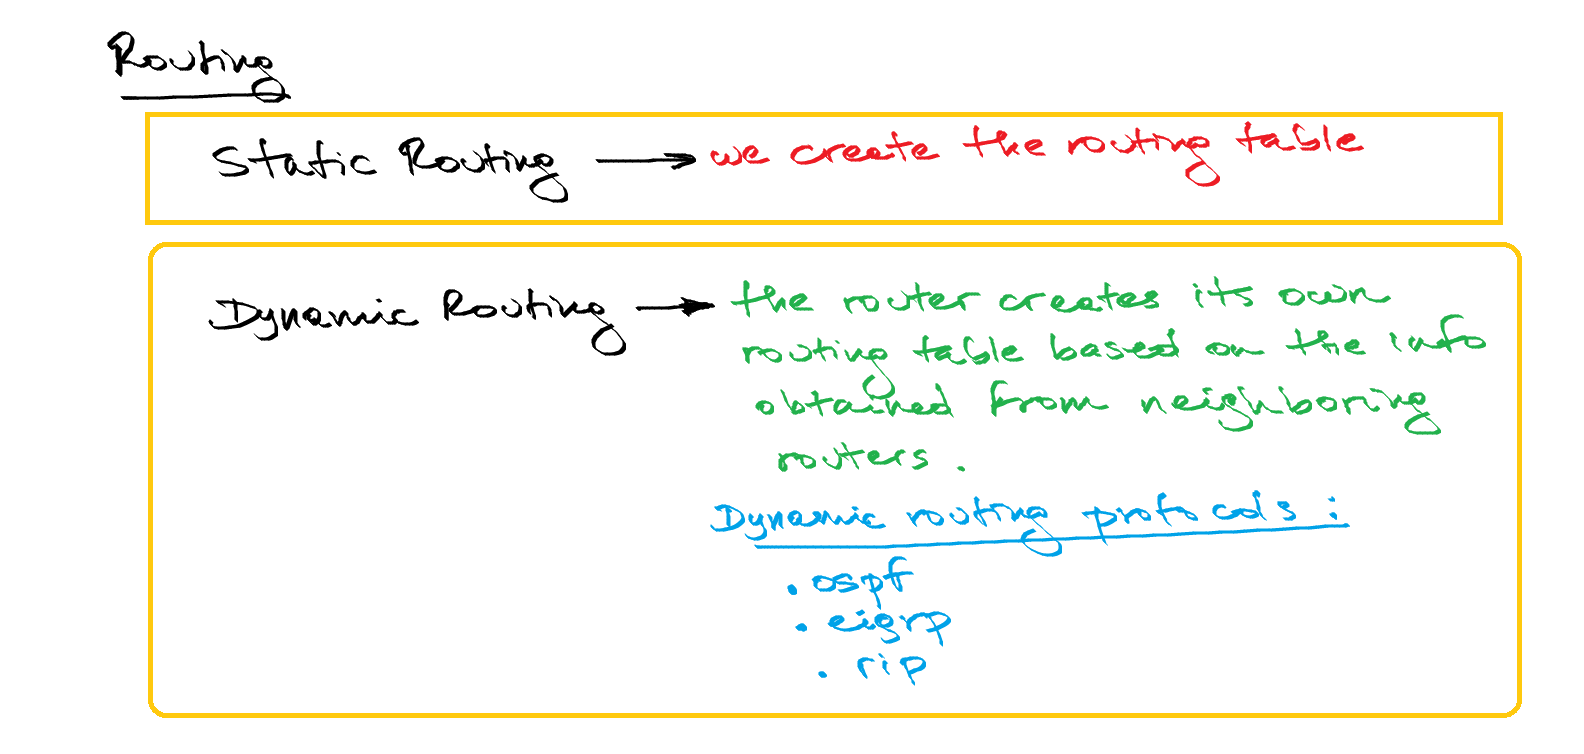 Routing
Static Routing → we create the routing table
Dynamic Routing → the router creates its own
routing table based on the info
obtained from neighboring
routers.
Dynamic routing protocols:
. ospf
. eigrp
. rip